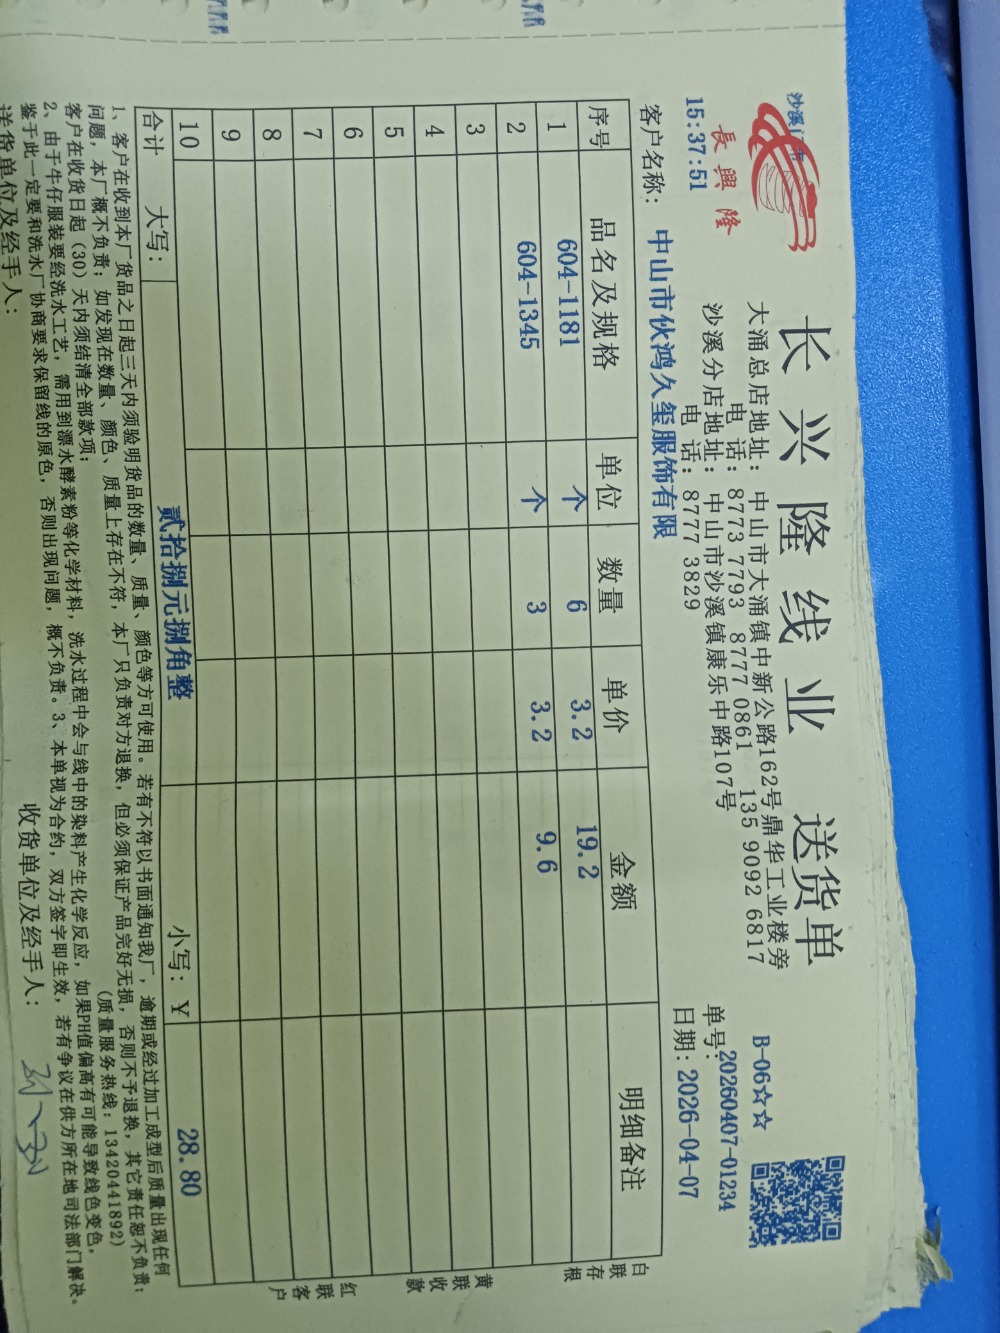 沙溪门市
長興隆
15:37:51
长兴隆线业 送货单
大涌总店地址: 中山市大涌镇中新公路162号鼎华工业楼旁
电 话: 8773 7793 8777 0861 135 9092 6817
沙溪分店地址: 中山市沙溪镇康乐中路107号
电 话: 8777 3829
B-06☆☆
单号:20260407-01234
日期: 2026-04-07
客户名称: 中山市伙鸿久玺服饰有限
序号 品名及规格 单位 数量 单价 金额 明细备注
1 604-1181 个 6 3.2 19.2
2 604-1345 个 3 3.2 9.6
3
4
5
6
7
8
9
10
合计 大写: 贰拾捌元捌角整 小写: Y 28.80
白联存根
黄联收款
红联客户
1、客户在收到本厂货品之日起三天内须验明货品的数量、质量、颜色等方可使用。若有不符以书面通知我厂,逾期或经过加工成型后质量出现任何
问题,本厂概不负责;如发现在数量、颜色、质量上存在不符,本厂只负责对方退换,但必须保证产品完好无损,否则不予退换,其它责任恕不负责;
客户在收货日起(30)天内须结清全部款项; (质量服务热线:13420441892)
2、由于牛仔服装要经洗水工艺,需用到漂水酵素粉等化学材料,洗水过程中会与线中的染料产生化学反应,如果PH值偏高有可能导致线色变色,
鉴于此一定要和洗水厂协商要求保留线的原色,否则出现问题,概不负责。3、本单视为合约,双方签字即生效,若有争议在供方所在地司法部门解决。
送货单位及经手人: 收货单位及经手人: